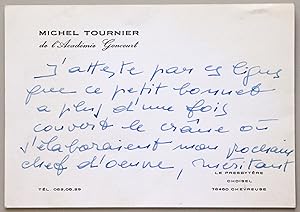 MICHEL TOURNIER
de l'Académie Goncourt
J'atteste par ces lignes
que ce petit bonnet
a plus d'une fois
couvert le crâne où
s'élaboraient mon prochain
chef d'oeuvre, méritant
LE PRESBYTÈRE
CHOISEL
TÉL. 052.05.29
78460 CHEVREUSE